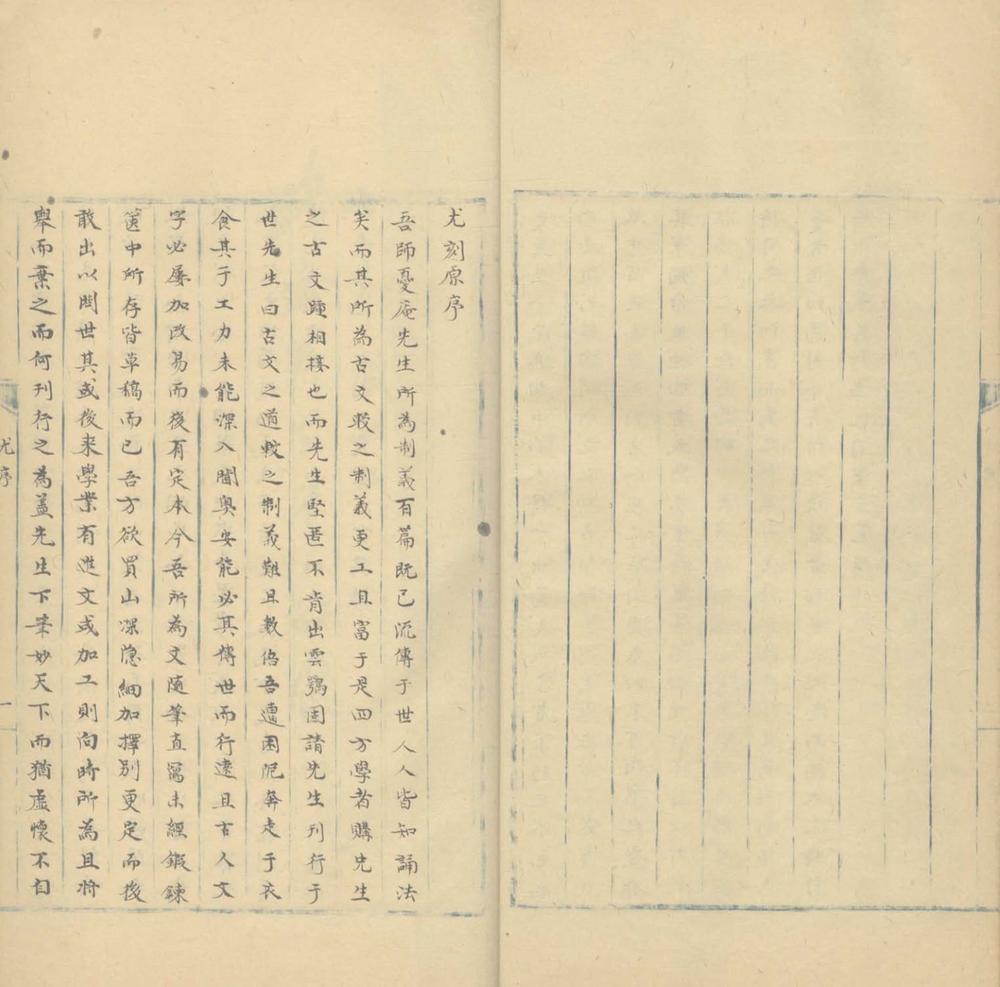 尤刻原序
吾師憂庵先生所為制義百篇既已流傳于世人人皆知誦法
矣而其所為古文較之制義更工且富于是四方學者購先生
之古文踵相接也而先生堅匿不肯出雲鶚固請先生刊行于
世先生曰古文之道較之制義難且數倍吾遭困阨奔走于衣
食其于工力未能深入閫奥安能必其傳世而行遠且古人文
字必屢加改易而後有定本今吾所為文隨筆直寫未經鍜鍊
篋中所存皆草稿而已吾方欲買山深隐細加擇別更定而後
敢出以問世其或後来學業有進文或加工則向時所為且将
舉而棄之而何刊行之為盖先生下筆妙天下而猶虚懷不自
尤序
一